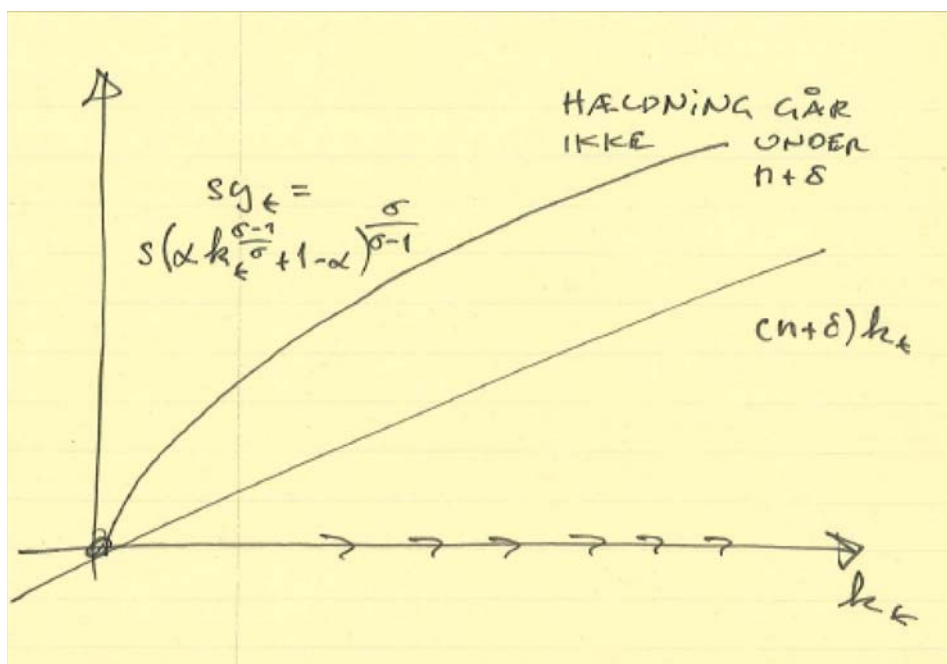 HÆLDNING GÅR
IKKE UNDER
n+δ
sy_t =
s(αk_t^{\frac{σ-1}{σ}}+1-α)^{\frac{σ}{σ-1}}
(n+δ)k_t
k_t